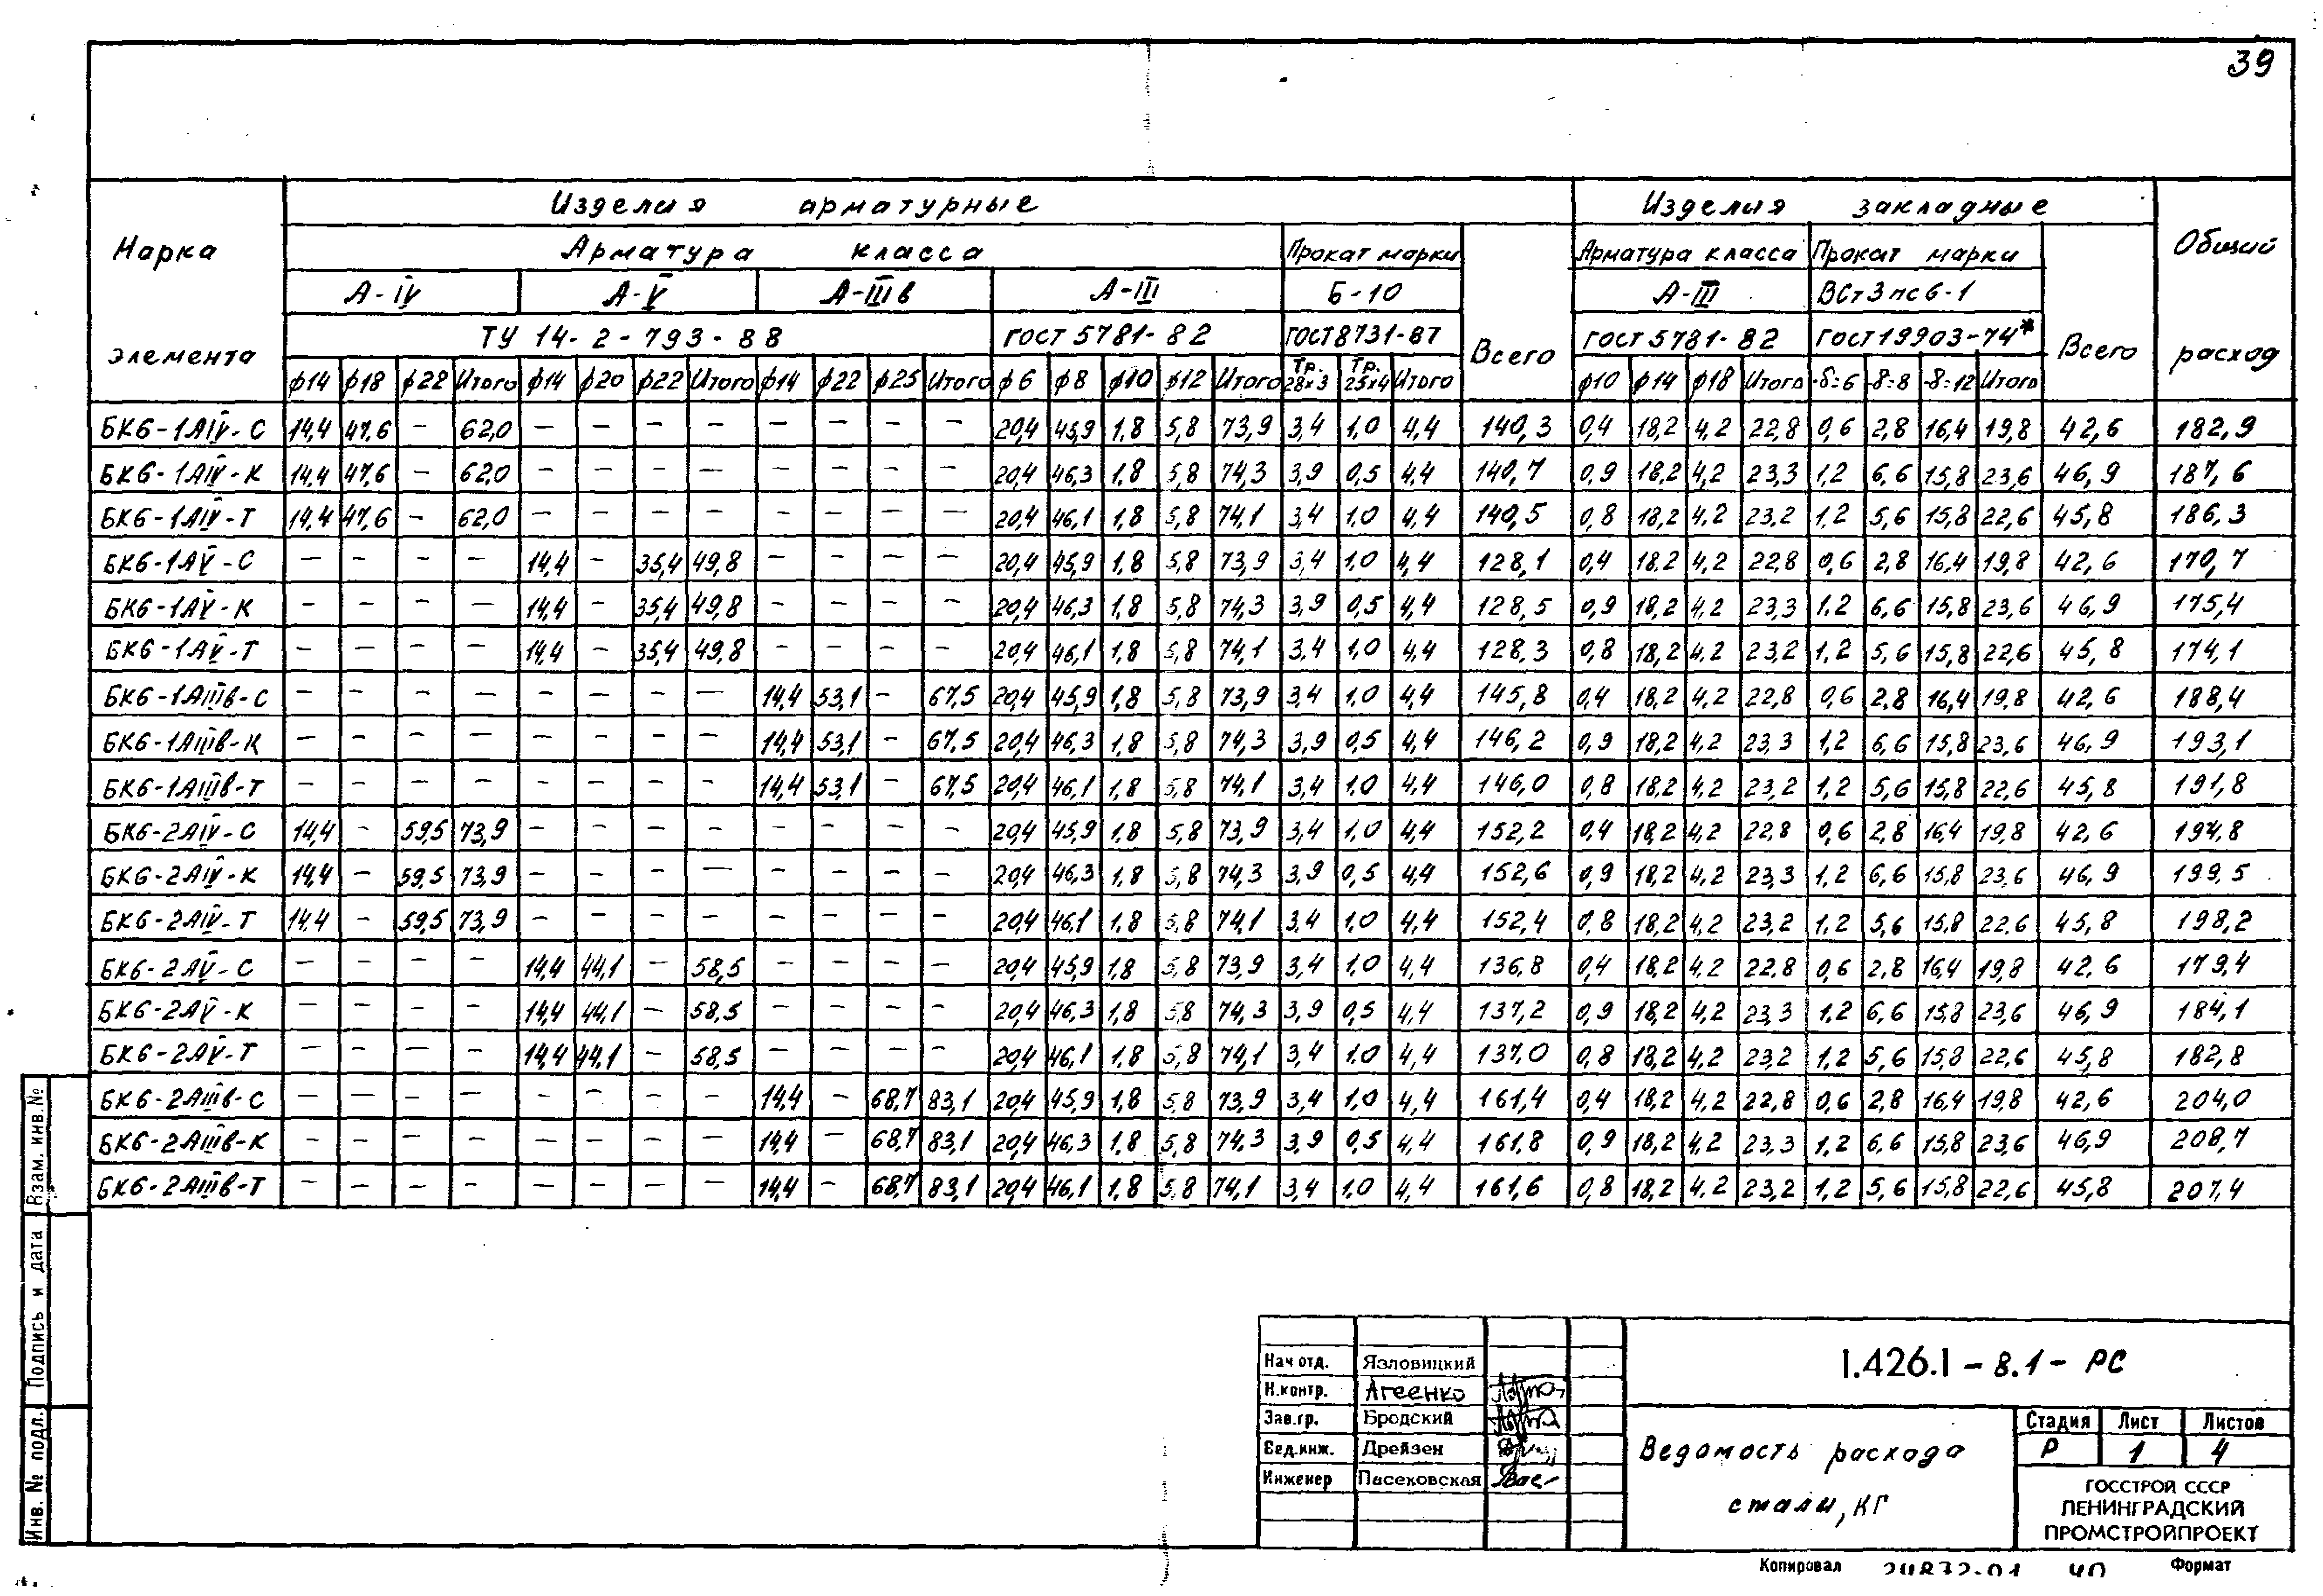 39
Марка элемента
Изделия арматурные
Изделия закладные
Общий расход
Арматура класса
Прокат марки
Всего
Арматура класса
Прокат марки
Всего
А-IV А-V А-IIIв А-III Б-10 А-III ВСт3пс6-1
ТУ 14-2-793-88 ГОСТ 5781-82 ГОСТ 8731-87 ГОСТ 5781-82 ГОСТ 19903-74*
ϕ14 ϕ18 ϕ22 Итого ϕ14 ϕ20 ϕ22 Итого ϕ14 ϕ22 ϕ25 Итого ϕ6 ϕ8 ϕ10 ϕ12 Итого Тр. 28×3 Тр. 25×4 Итого ϕ10 ϕ14 ϕ18 Итого -δ=6 -δ=8 -δ=12 Итого
БК6-1АIV-С 14,4 47,6 – 62,0 – – – – – – – – 20,4 45,9 1,8 5,8 73,9 3,4 1,0 4,4 140,3 0,4 18,2 4,2 22,8 0,6 2,8 16,4 19,8 42,6 182,9
БК6-1АIV-К 14,4 47,6 – 62,0 – – – – – – – – 20,4 46,3 1,8 5,8 74,3 3,9 0,5 4,4 140,7 0,9 18,2 4,2 23,3 1,2 6,6 15,8 23,6 46,9 187,6
БК6-1АIV-Т 14,4 47,6 – 62,0 – – – – – – – – 20,4 46,1 1,8 5,8 74,1 3,4 1,0 4,4 140,5 0,8 18,2 4,2 23,2 1,2 5,6 15,8 22,6 45,8 186,3
БК6-1АV-С – – – – 14,4 – 35,4 49,8 – – – – 20,4 45,9 1,8 5,8 73,9 3,4 1,0 4,4 128,1 0,4 18,2 4,2 22,8 0,6 2,8 16,4 19,8 42,6 170,7
БК6-1АV-К – – – – 14,4 – 35,4 49,8 – – – – 20,4 46,3 1,8 5,8 74,3 3,9 0,5 4,4 128,5 0,9 18,2 4,2 23,3 1,2 6,6 15,8 23,6 46,9 175,4
БК6-1АV-Т – – – – 14,4 – 35,4 49,8 – – – – 20,4 46,1 1,8 5,8 74,1 3,4 1,0 4,4 128,3 0,8 18,2 4,2 23,2 1,2 5,6 15,8 22,6 45,8 174,1
БК6-1АIIIв-С – – – – – – – – 14,4 53,1 – 67,5 20,4 45,9 1,8 5,8 73,9 3,4 1,0 4,4 145,8 0,4 18,2 4,2 22,8 0,6 2,8 16,4 19,8 42,6 188,4
БК6-1АIIIв-К – – – – – – – – 14,4 53,1 – 67,5 20,4 46,3 1,8 5,8 74,3 3,9 0,5 4,4 146,2 0,9 18,2 4,2 23,3 1,2 6,6 15,8 23,6 46,9 193,1
БК6-1АIIIв-Т – – – – – – – – 14,4 53,1 – 67,5 20,4 46,1 1,8 5,8 74,1 3,4 1,0 4,4 146,0 0,8 18,2 4,2 23,2 1,2 5,6 15,8 22,6 45,8 191,8
БК6-2АIV-С 14,4 – 59,5 73,9 – – – – – – – – 20,4 45,9 1,8 5,8 73,9 3,4 1,0 4,4 152,2 0,4 18,2 4,2 22,8 0,6 2,8 16,4 19,8 42,6 194,8
БК6-2АIV-К 14,4 – 59,5 73,9 – – – – – – – – 20,4 46,3 1,8 5,8 74,3 3,9 0,5 4,4 152,6 0,9 18,2 4,2 23,3 1,2 6,6 15,8 23,6 46,9 199,5
БК6-2АIV-Т 14,4 – 59,5 73,9 – – – – – – – – 20,4 46,1 1,8 5,8 74,1 3,4 1,0 4,4 152,4 0,8 18,2 4,2 23,2 1,2 5,6 15,8 22,6 45,8 198,2
БК6-2АV-С – – – – 14,4 44,1 – 58,5 – – – – 20,4 45,9 1,8 5,8 73,9 3,4 1,0 4,4 136,8 0,4 18,2 4,2 22,8 0,6 2,8 16,4 19,8 42,6 179,4
БК6-2АV-К – – – – 14,4 44,1 – 58,5 – – – – 20,4 46,3 1,8 5,8 74,3 3,9 0,5 4,4 137,2 0,9 18,2 4,2 23,3 1,2 6,6 15,8 23,6 46,9 184,1
БК6-2АV-Т – – – – 14,4 44,1 – 58,5 – – – – 20,4 46,1 1,8 5,8 74,1 3,4 1,0 4,4 137,0 0,8 18,2 4,2 23,2 1,2 5,6 15,8 22,6 45,8 182,8
БК6-2АIIIв-С – – – – – – – – 14,4 – 68,7 83,1 20,4 45,9 1,8 5,8 73,9 3,4 1,0 4,4 161,4 0,4 18,2 4,2 22,8 0,6 2,8 16,4 19,8 42,6 204,0
БК6-2АIIIв-К – – – – – – – – 14,4 – 68,7 83,1 20,4 46,3 1,8 5,8 74,3 3,9 0,5 4,4 161,8 0,9 18,2 4,2 23,3 1,2 6,6 15,8 23,6 46,9 208,7
БК6-2АIIIв-Т – – – – – – – – 14,4 – 68,7 83,1 20,4 46,1 1,8 5,8 74,1 3,4 1,0 4,4 161,6 0,8 18,2 4,2 23,2 1,2 5,6 15,8 22,6 45,8 207,4
Взам. инв. №
Подпись и дата
Инв. № подл.
Нач отд. Язловицкий
Н.контр. Агеенко
Зав.гр. Бродский
Вед.инж. Дрейзен
Инженер Пасековская
1.426.1-8.1-РС
Ведомость расхода
стали, кг
Стадия Лист Листов
Р 1 4
ГОССТРОЙ СССР
ЛЕНИНГРАДСКИЙ
ПРОМСТРОЙПРОЕКТ
Копировал 24872-01 40 Формат